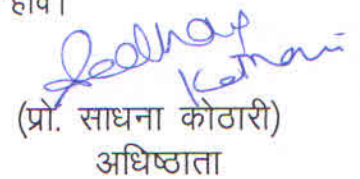 होवे।
Sadhna
Kothari
(प्रो. साधना कोठारी)
अधिष्ठाता